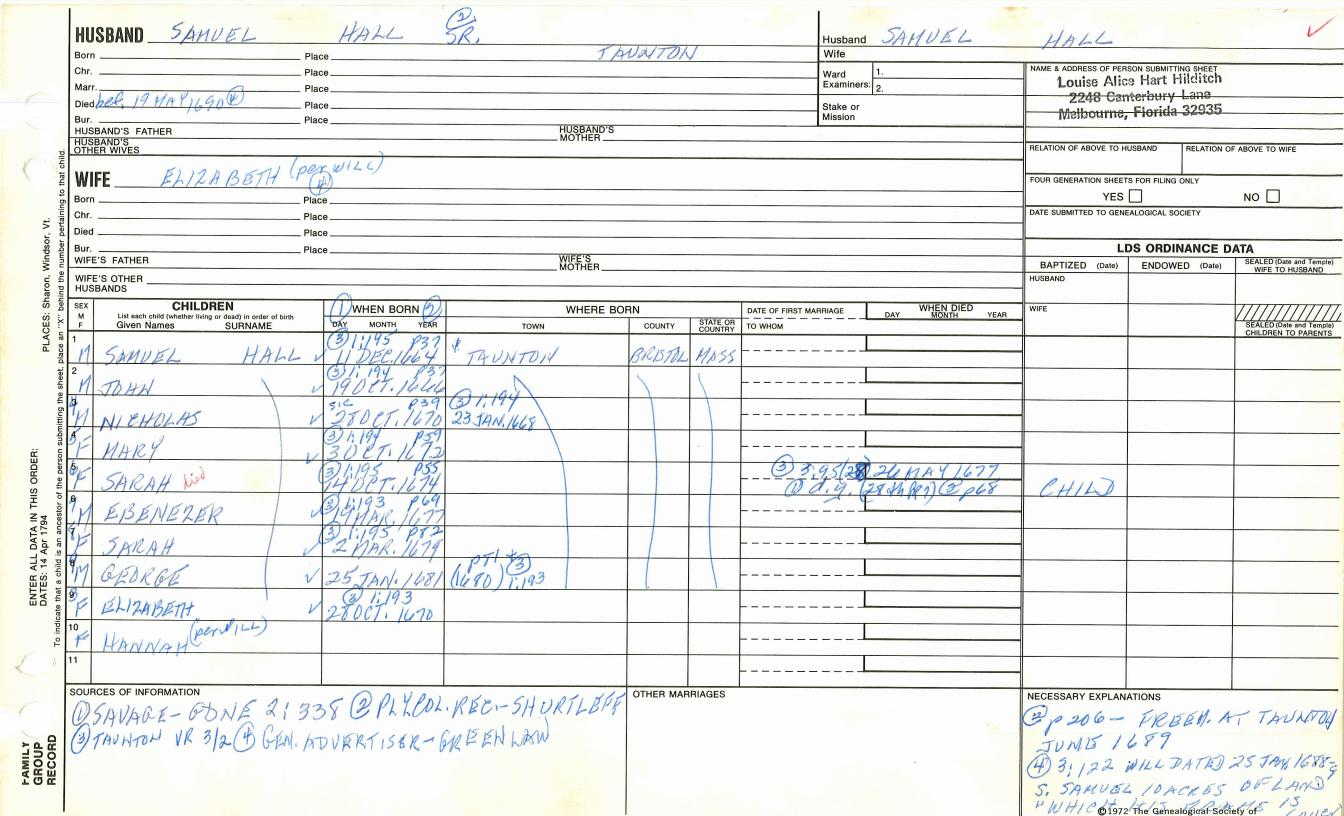 HUSBAND SAMUEL HALL ② SR.
Born Place TAUNTON
Chr. Place
Marr. Place
Died bef. 19 MAY 1690 ④ Place
Bur. Place
HUSBAND'S FATHER HUSBAND'S MOTHER
HUSBAND'S OTHER WIVES
WIFE ELIZABETH (per WILL) ④
Born Place
Chr. Place
Died Place
Bur. Place
WIFE'S FATHER WIFE'S MOTHER
WIFE'S OTHER HUSBANDS
Husband SAMUEL HALL
Wife
Ward Examiners: 1.
2.
Stake or Mission
NAME & ADDRESS OF PERSON SUBMITTING SHEET
Louise Alice Hart Hilditch
2248 Canterbury Lane
Melbourne, Florida 32935
RELATION OF ABOVE TO HUSBAND RELATION OF ABOVE TO WIFE
FOUR GENERATION SHEETS FOR FILING ONLY
YES NO
DATE SUBMITTED TO GENEALOGICAL SOCIETY
LDS ORDINANCE DATA
BAPTIZED (Date) ENDOWED (Date) SEALED (Date and Temple) WIFE TO HUSBAND
HUSBAND
WIFE
SEALED (Date and Temple) CHILDREN TO PARENTS
SEX M F
CHILDREN
List each child (whether living or dead) in order of birth
Given Names SURNAME
① WHEN BORN ②
DAY MONTH YEAR
WHERE BORN
TOWN COUNTY STATE OR COUNTRY
DATE OF FIRST MARRIAGE
TO WHOM
WHEN DIED
DAY MONTH YEAR
1 ③ 1:195 p37
M SAMUEL HALL ✓ 11 DEC. 1664 TAUNTON BRISTOL MASS
2 ③ 1:194 p37
M JOHN ✓ 19 OCT. 1666
sic p39 ③ 1:194
M NICHOLAS ✓ 28 OCT. 1670 23 JAN. 1668
4 ③ 1:194 p59
F MARY ✓ 3 OCT. 1672
5 ③ 1:195 p55 ③ 3:95 (28) 26 MAY 1677
F SARAH died 14 OCT. 1674 ① d.y. ② p68 CHILD
6 ③ 1:193 p69
M EBENEZER 19 MAR. 1677
7 ③ 1:195 p82
F SARAH ✓ 2 MAR. 1679
③
M GEORGE ✓ 25 JAN. 1681 (1680) 1:193
9 ③ 1:193
F ELIZABETH ✓ 28 OCT. 1670
10
F HANNAH (per WILL)
11
SOURCES OF INFORMATION
① SAVAGE- GDNE 2:338 ② PLY.COL.REC.- SHURTLEFF
③ TAUNTON VR 3/2 ④ GEN. ADVERTISER- GREENLAW
OTHER MARRIAGES
NECESSARY EXPLANATIONS
p206 - FREEM. AT TAUNTON
JUNE 1689
④ 3:122 WILL DATED 25 JAN. 1688-9
S. SAMUEL 10 ACRES OF LAND
"WHICH HIS FRAME IS
©1972 The Genealogical Society of
PLACES: Sharon, Windsor, Vt.
To indicate that a child is an ancestor of the person submitting the sheet, place an "X" behind the number pertaining to that child.
ENTER ALL DATA IN THIS ORDER:
DATES: 14 Apr 1794
FAMILY GROUP RECORD